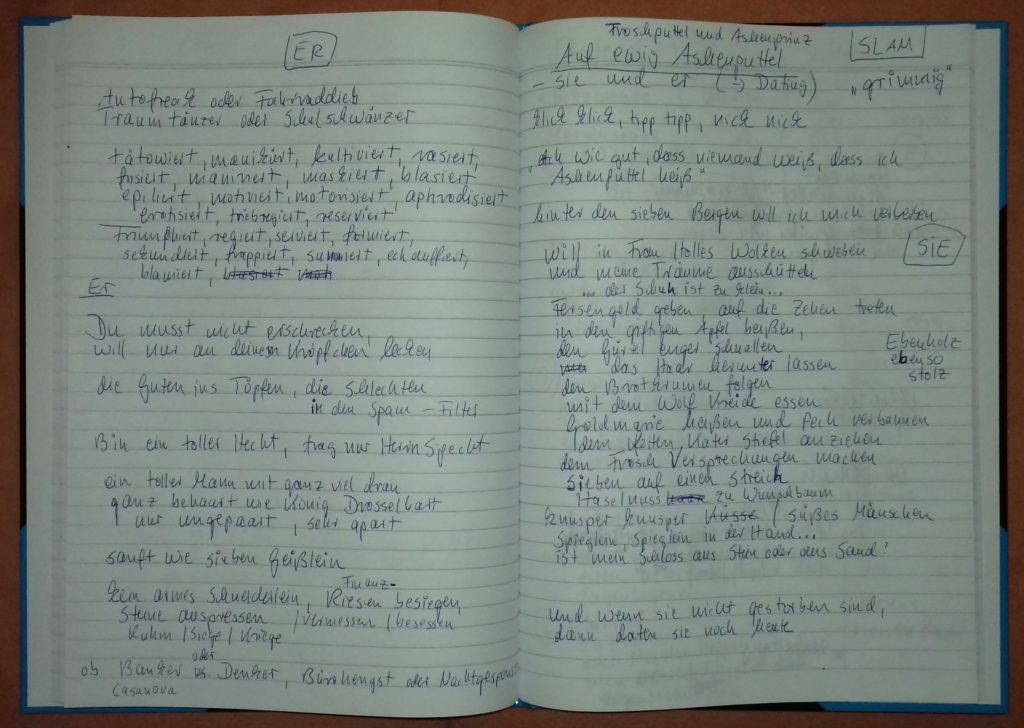 ER
Autofreak oder Fahrraddieb
Traumtänzer oder Schulschwänzer
tätowiert, manikürt, kultiviert, rasiert,
frisiert, maniriert, maskiert, blasiert
epiliert, motiviert, motorisiert, aphrodisiert
erotisiert, triebregiert, reserviert
Triumphiert, regiert, serviert, formiert,
sekundiert, frappiert, summiert, echauffiert,
blamiert,
Er
Du musst nicht erschrecken,
will nur an deinem Knöpfchen lecken
die Guten ins Töpfen, die Schlechten
in den Spam-Filter
Bin ein toller Hecht, frag nur Herrn Specht
ein toller Mann mit ganz viel dran
ganz behaart wie König Drosselbart
nur ungepaart, sehr apart
sanft wie sieben Geißlein
Finanz-
kein armes Schneiderlein, Riesen besiegen,
Steine auspressen / vermessen / besessen
Ruhm / Siege / Kriege
oder
ob Banker vs. Denker, Bürohengst oder Nachtgespenst
Casanova
Froschputtel und Aschenprinz
SLAM
Auf ewig Aschenputtel
- Sie und er (→ Dating) "grimmig"
klick klick, tipp tipp, nick nick
"Ach wie gut, dass niemand weiß, dass ich
Aschenputtel heiß"
hinter den sieben Bergen will ich mich verbergen
SIE
will in Frau Holles Wolken schweben
und meine Träume ausschütteln
... der Schuh ist zu klein...
Fersengeld geben, auf die Zehen treten
in den giftigen Apfel beißen,
den Gürtel enger schnallen
das Haar herunter lassen
Ebenholz
ebenso
stolz
den Brotkrumen folgen
mit dem Wolf Kreide essen
Goldmarie heißen und Pech verbannen
dem Kater Stiefel anziehen
dem Frosch Versprechungen machen
Sieben auf einen Streich
Haselnuss zu Wunschbaum
knusper knusper Küsse / süßes Mäuschen
Spieglein, Spieglein in der Hand...
ist mein Schloss aus Stein oder aus Sand?
Und wenn sie nicht gestorben sind,
dann daten sie noch heute